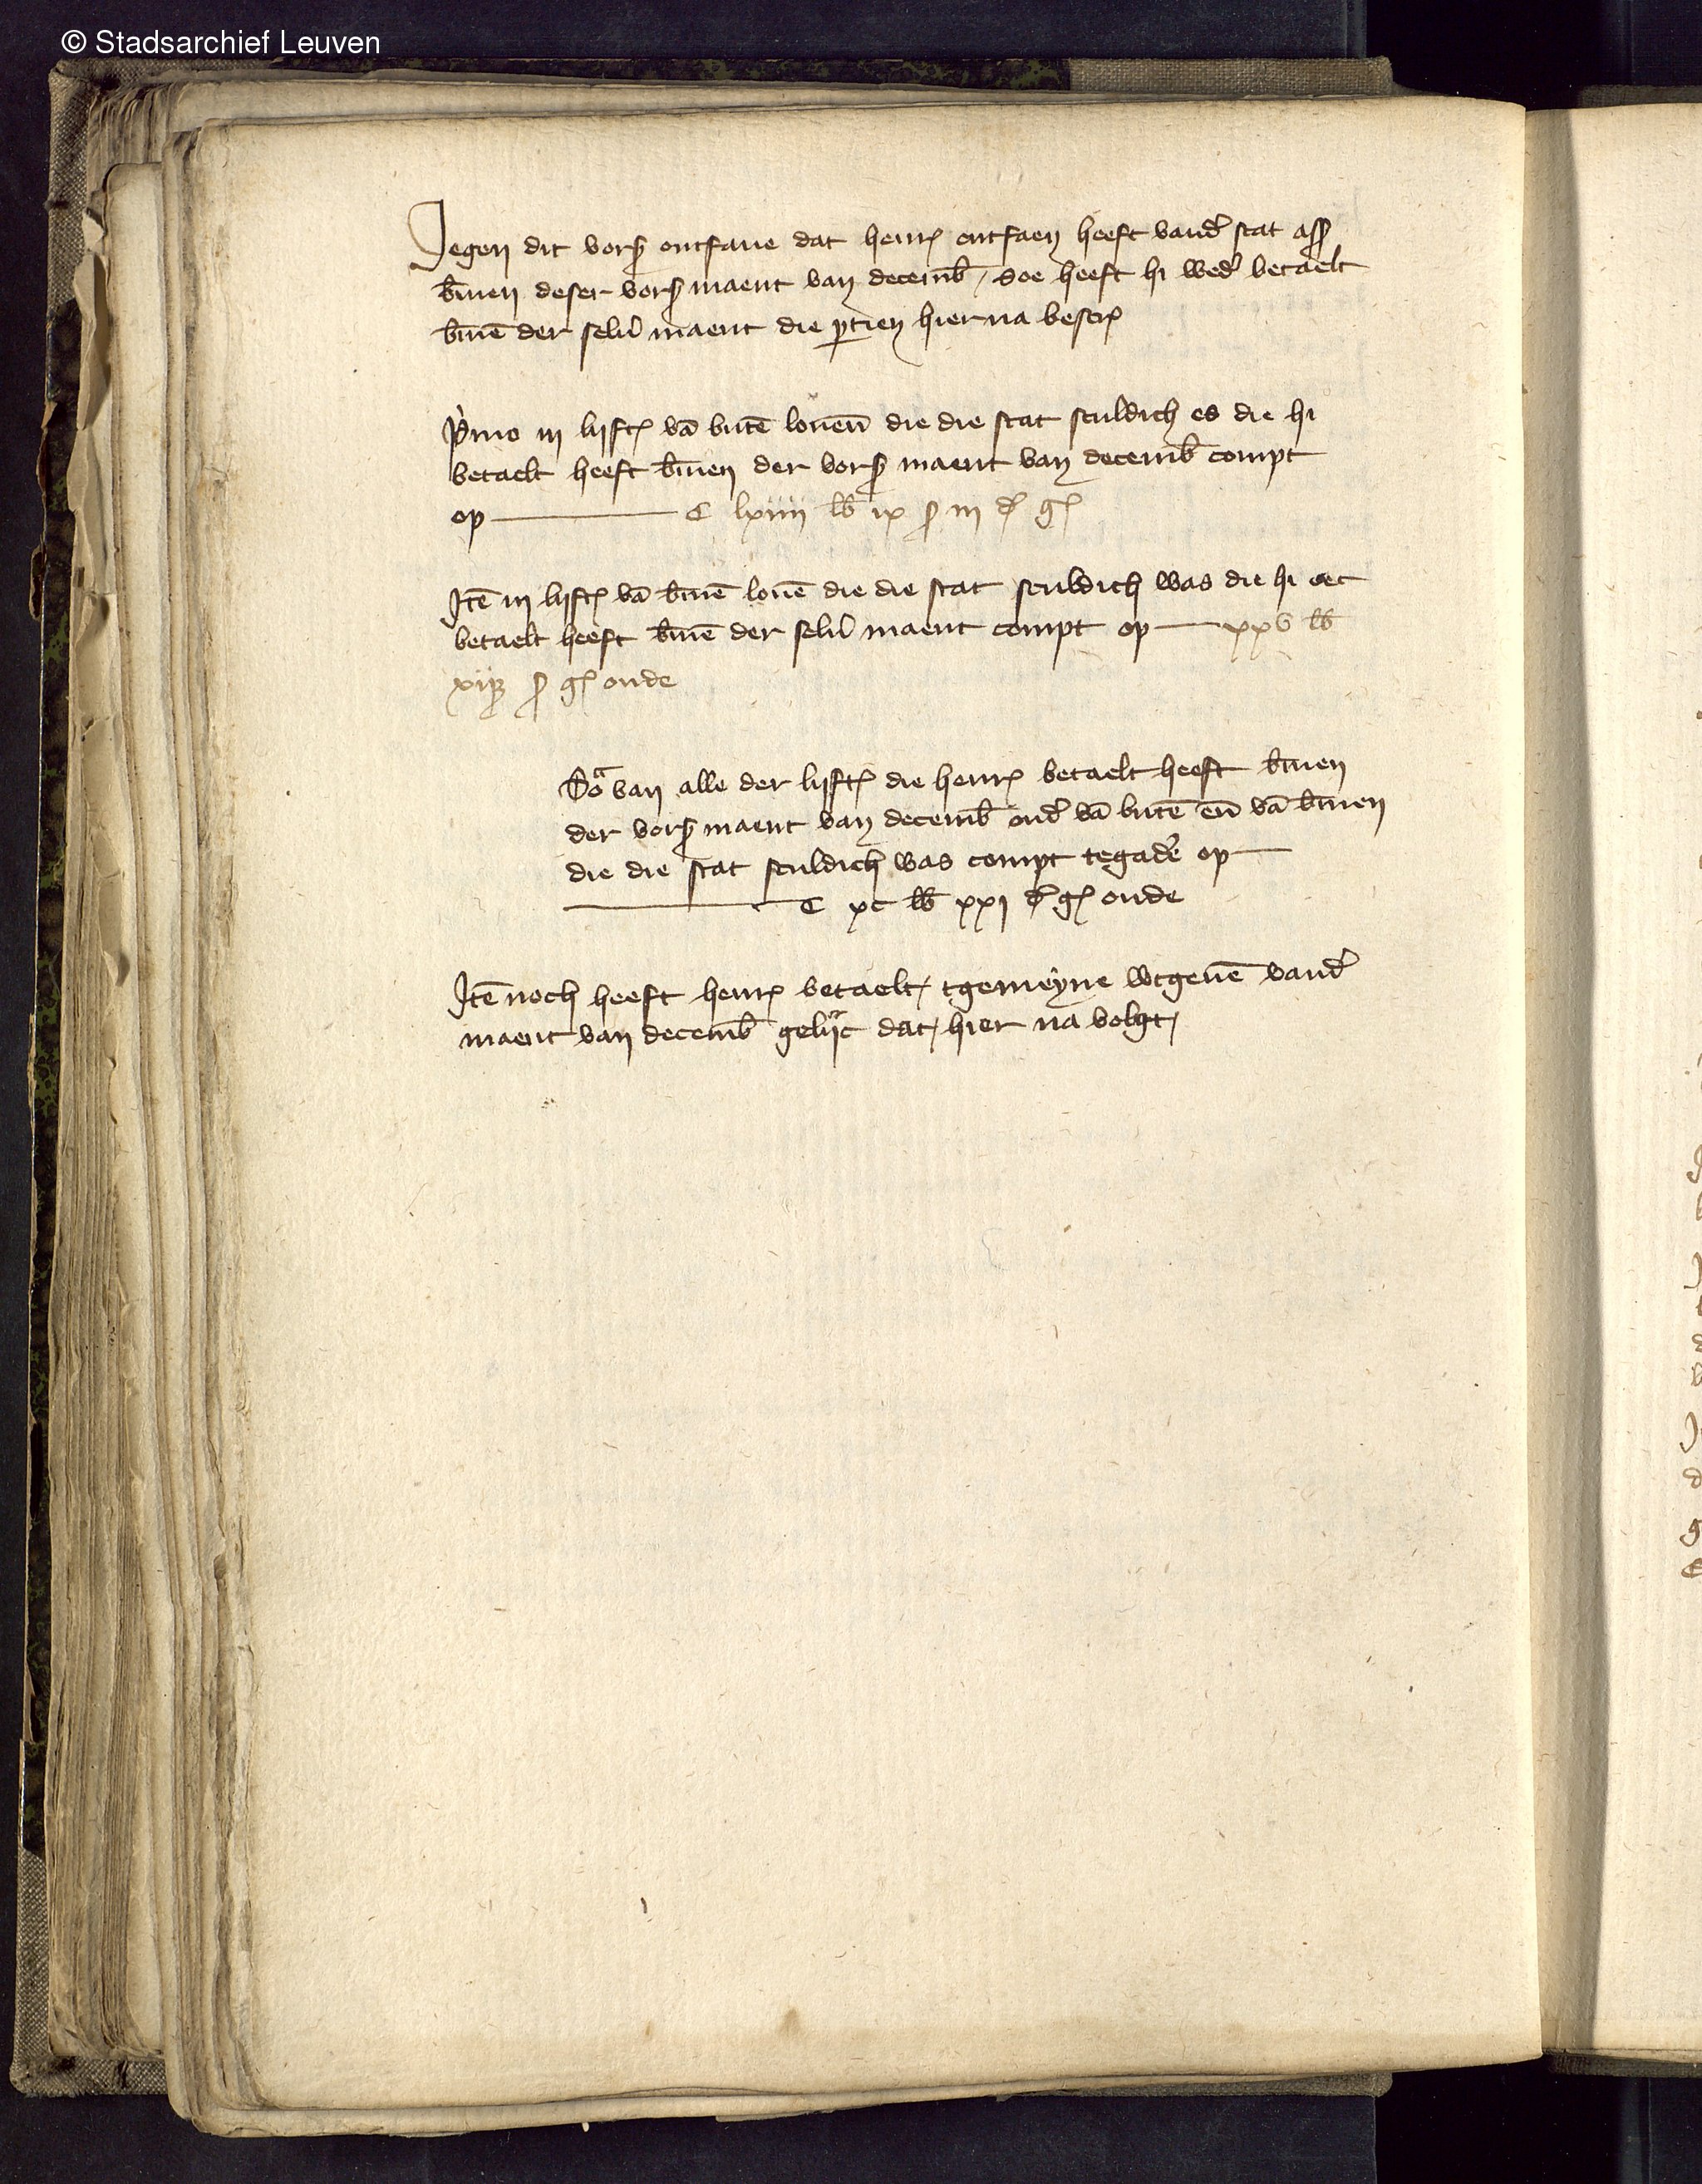 © Stadsarchief Leuven
Jegen dit vors ontfane dat henr ontfaen heeft vand stat ass
bīnen deser vors maent van decemb / doe heeft hi wed betaelt
bīnē der selv maent die ptien hier na bescr
Pimo in lijft vā butē lovē die die stat sculdich es die hi
betaelt heeft bīnen der vors maent van decemb compt
op C lxiiii lb ix s iii d g
Itē in lijft vā bīnē lovē die die stat sculdich was die hi oec
betaelt heeft bīnē der selv maent compt op xxv lb
s g oude
Sōa van alle der lijft die henr betaelt heeft bīnen
der vors maent van decemb vā butē eñ vā bīnen
die die stat sculdich was compt tegadē op
C xc lb xxi d g oude
Itē noch heeft henr betaelt tgemeyne wtgevē vand
maent van decemb gelijc dat hier na volgt